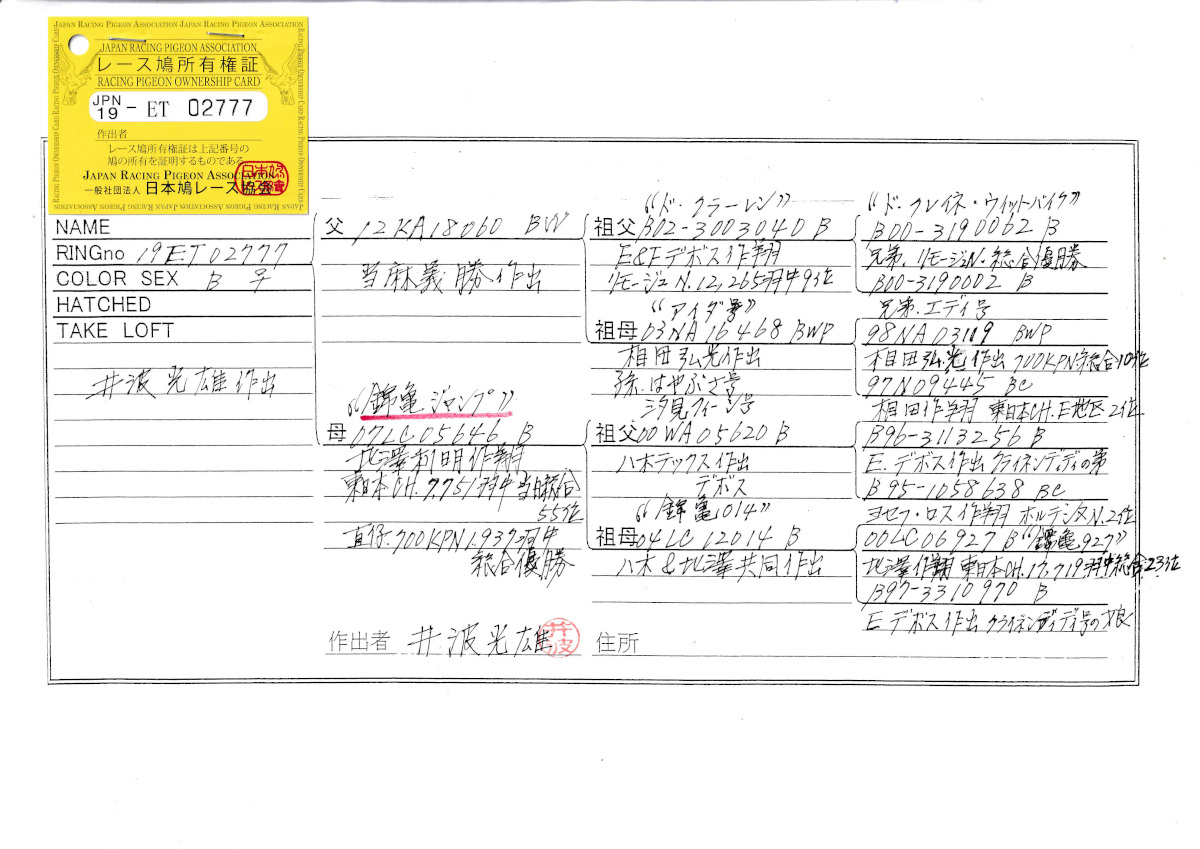 JAPAN RACING PIGEON ASSOCIATION JAPAN RACING PIGEON ASSOCIATION
JAPAN RACING PIGEON ASSOCIATION
レース鳩所有権証
RACING PIGEON OWNERSHIP CARD
JPN 19 - ET 02777
作出者
レース鳩所有権証は上記番号の
鳩の所有を証明するものである。
JAPAN RACING PIGEON ASSOCIATION
一般社団法人 日本鳩レース協会
NAME
RINGno 19ET02777
COLOR SEX B ♀
HATCHED
TAKE LOFT
井波光雄作出
父 12KA18060 BW
当麻義勝作出
"錦亀ジャンプ"
母 07LC05646 B
北澤利明作翔
東日本CH.7,751羽中当日総合
55位
直仔.700KPN1.937羽中
総合優勝
"ド・クラーレン"
祖父 B02-3003040 B
E&Fデボス作翔
リモージュN.12,265羽中9位
"アイダ号"
祖母 03NA16468 BWP
相田弘光作出
孫.はやぶさ号
汐見クィーン号
祖父 00WA05620 B
ハホテックス作出
デボス
"錦亀014"
祖母 04LC12014 B
八木&北澤共同作出
"ド・クレイネ・ウィットバイク"
B00-3190062 B
兄弟.リモージュN.総合優勝
B00-3190002 B
兄弟.エディ号
98NA03119 BWP
相田弘光作出 700KPN総合10位
97N09445 BC
相田作翔 東日本CH.E地区2位
B96-3113256 B
E.デボス作出クライネンディディの弟
B95-1058638 BC
ヨセフ・ロス作翔 ボルデンタN.2位
00LC06927 B "錦亀927"
北澤作翔 東日本CH.17,719羽中総合23位
B97-3310970 B
Eデボス作出クライネンディディ号の娘
作出者 井波光雄 井波
住所